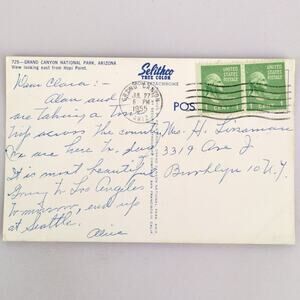 725—GRAND CANYON NATIONAL PARK, ARIZONA
View looking east from Hopi Point.
Selithco
TRUE COLOR
FROM EKTACHROME
POS
GRAND CANYON
JUL
6 PM
1955
ARIZ.
UNITED STATES
POSTAGE
1 CENT
UNITED STATES
POSTAGE
1 CENT
Dear Clara:-
Alan and
are taking a
trip across the country
We are here to
It is most beautiful
Going to Los Angeles
tomorrow, end up
at Seattle.
Alice
Mrs. H. Linaman
3319 Ave J
Brooklyn 10 N.Y.